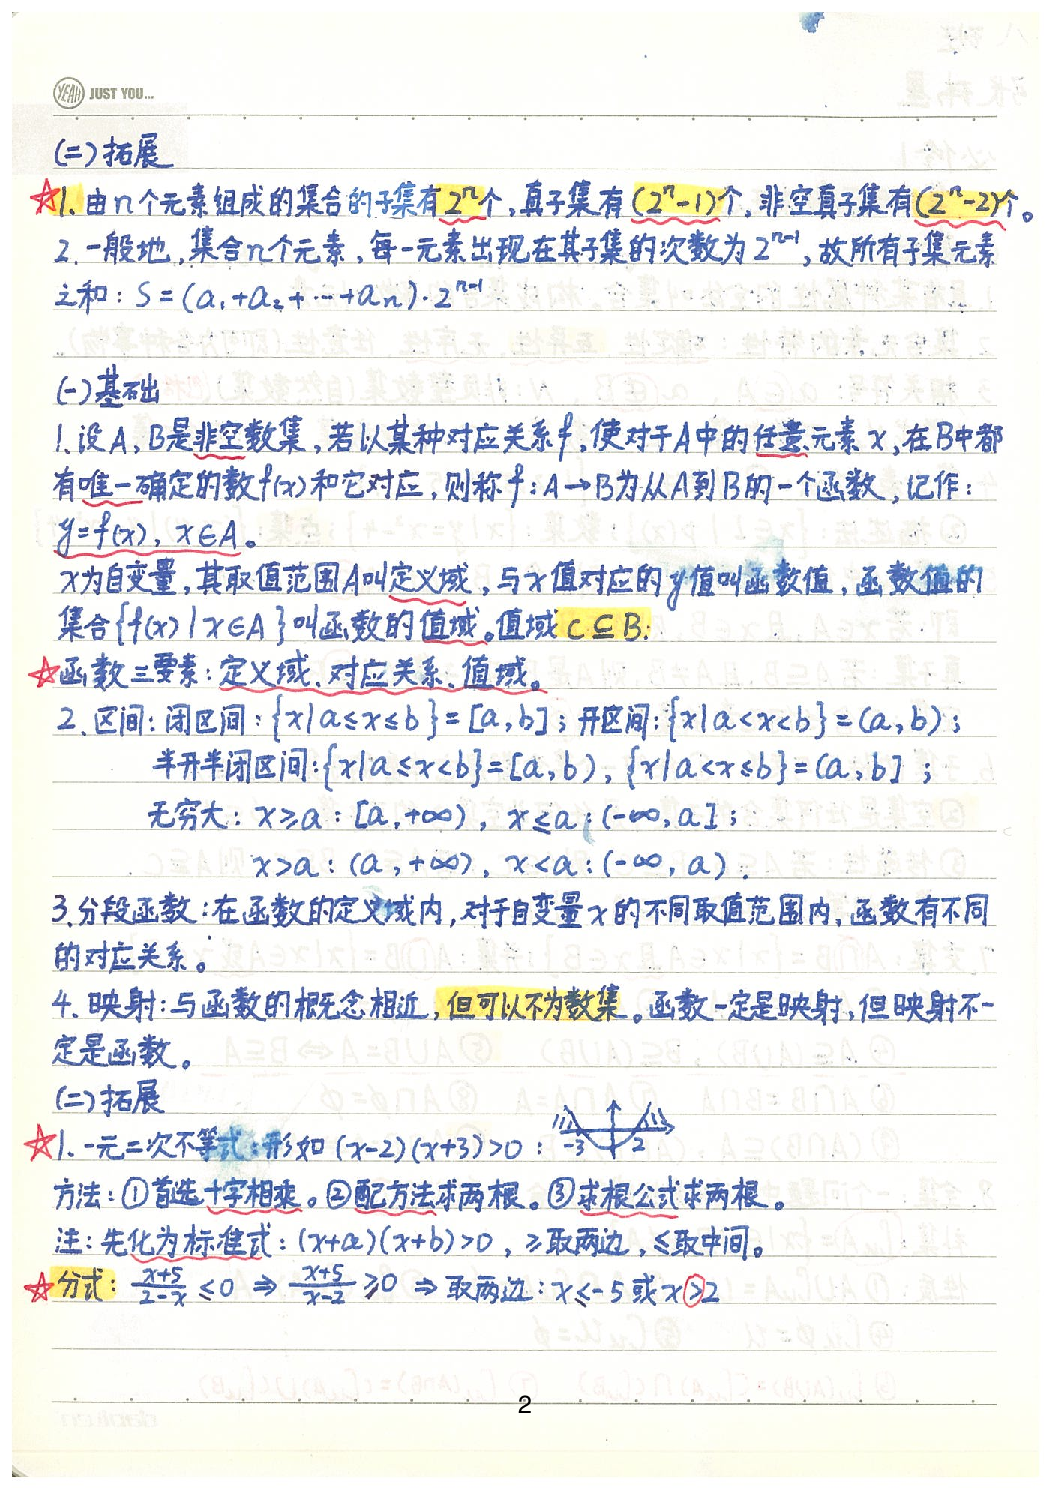 YEAH JUST YOU...
(二)拓展
☆1. 由n个元素组成的集合的子集有2ⁿ个, 真子集有(2ⁿ-1)个, 非空真子集有(2ⁿ-2)个。
2. 一般地, 集合n个元素, 每一元素出现在其子集的次数为2ⁿ⁻¹, 故所有子集元素
之和: S=(a₁+a₂+…+aₙ)·2ⁿ⁻¹
(一)基础
1. 设A, B是非空数集, 若以某种对应关系f, 使对于A中的任意元素x, 在B中都
有唯一确定的数f(x)和它对应, 则称f: A→B为从A到B的一个函数, 记作:
y=f(x), x∈A。
x为自变量, 其取值范围A叫定义域, 与x值对应的y值叫函数值, 函数值的
集合{f(x)|x∈A}叫函数的值域。值域C⊆B.
☆函数三要素: 定义域、对应关系、值域。
2. 区间: 闭区间: {x|a≤x≤b}=[a,b]; 开区间: {x|a<x<b}=(a,b);
半开半闭区间: {x|a≤x<b}=[a,b), {x|a<x≤b}=(a,b];
无穷大: x≥a: [a,+∞), x≤a: (-∞,a];
x>a: (a,+∞), x<a: (-∞,a).
3. 分段函数: 在函数的定义域内, 对于自变量x的不同取值范围内, 函数有不同
的对应关系。
4. 映射: 与函数的概念相近, 但可以不为数集。函数一定是映射, 但映射不一
定是函数。
(二)拓展
☆1. 一元二次不等式: 形如(x-2)(x+3)>0: -3 2
方法: ①首选十字相乘。②配方法求两根。③求根公式求两根。
注: 先化为标准式: (x+a)(x+b)>0, ≥取两边, ≤取中间。
☆分式: (x+5)/(2-x)≤0 ⇒ (x+5)/(x-2)≥0 ⇒ 取两边: x≤-5或x>2
2